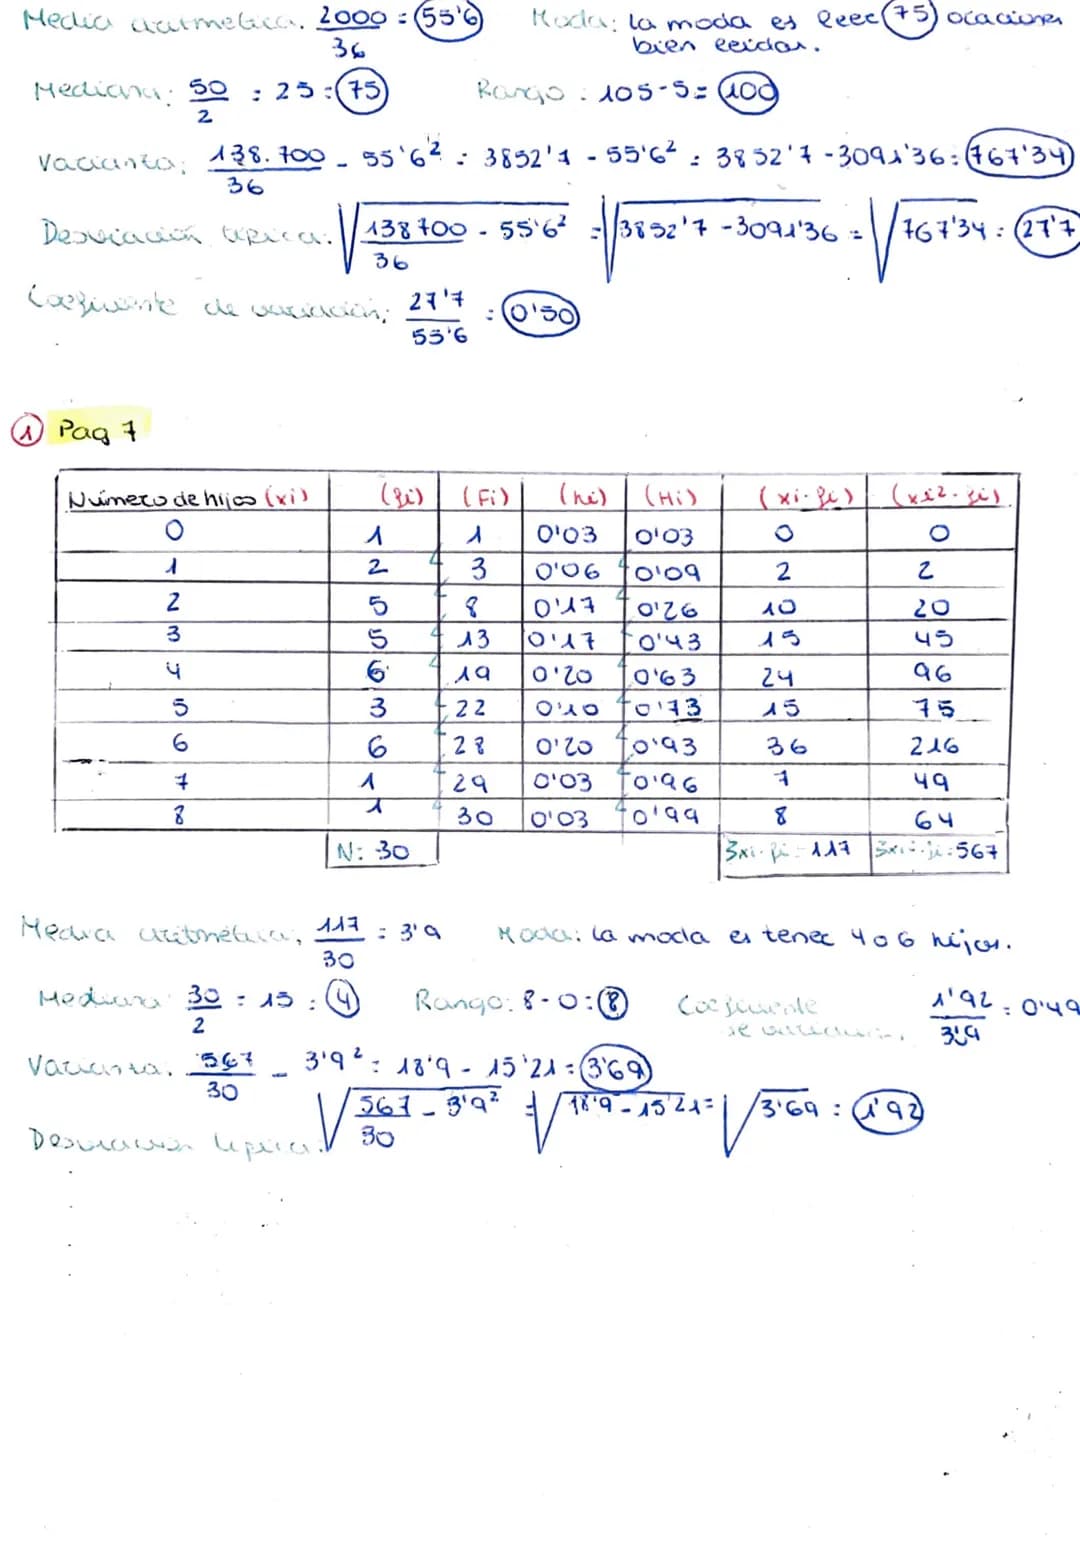 Media aritmetica. 2000/36 = 55'6 Moda: la moda es leer 75 ocaciones
bien leidas.
Mediana: 50/2 : 25 : 75 Rango: 105-5 = 100
Varianza: 138.700/36 - 55'6² : 3852'7 - 55'6² : 3852'7 - 3091'36 : 767'34
Desviación tipica: √138700/36 - 55'6² = √3852'7 - 3091'36 = √767'34 : 27'7
Coeficiente de variación: 27'7/55'6 : 0'50
① Pag 7
Número de hijos (xi) (fi) (Fi) (hi) (Hi) (xi·fi) (xi²·fi)
0 1 1 0'03 0'03 0 0
1 2 3 0'06 0'09 2 2
2 5 8 0'17 0'26 10 20
3 5 13 0'17 0'43 15 45
4 6 19 0'20 0'63 24 96
5 3 22 0'10 0'73 15 75
6 6 28 0'20 0'93 36 216
7 1 29 0'03 0'96 7 49
8 1 30 0'03 0'99 8 64
N: 30 Σxi·fi = 117 Σxi²·fi: 567
Media aritmética: 117/30 : 3'9 Moda: la moda es tener 4 o 6 hijos.
Mediana: 30/2 : 15 : 4 Rango: 8-0 : 8 Coeficiente de variacion: 1'92/3'9 : 0'49
Varianza: 567/30 - 3'9² : 18'9 - 15'21 = 3'69
Desviacion tipica: √567/30 - 3'9² = √18'9 - 15'21 = √3'69 : 1'92